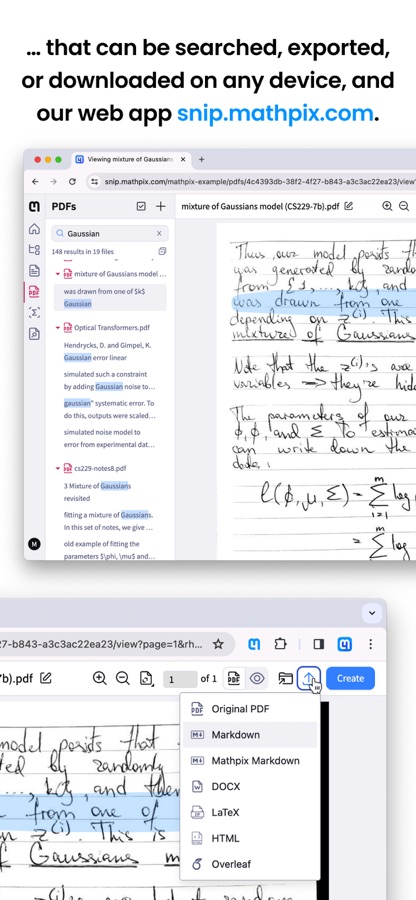 ... that can be searched, exported,
or downloaded on any device, and
our web app snip.mathpix.com.
Viewing mixture of Gaussians
snip.mathpix.com/mathpix-example/pdfs/4c4393db-38f2-4f27-b843-a3c3ac22ea23/view?
PDFs
mixture of Gaussians model (CS229-7b).pdf
Gaussian
148 results in 19 files
mixture of Gaussians model ...
was drawn from one of $k$
Gaussian
Optical Transformers.pdf
Hendrycks, D. and Gimpel, K.
Gaussian error linear
simulated such a constraint
by adding Gaussian noise to...
gaussian" systematic error. To
do this, outputs were scaled...
simulated noise model to
error from experimental dat...
cs229-notes8.pdf
3 Mixture of Gaussians
revisited
fitting a mixture of Gaussians.
In this set of notes, we give ...
old example of fitting the
parameters $\phi, \mu$ and...
M
Thus, our model posits th
was generated by rando
from {1, ..., k}, and
was drawn from one
depending on z(i). This
mixture of Gaussians
Note that the z(i)'s are
variables → they're hid
The parameters of our
ϕ, and Σ. To estima
can write down the
data:
ℓ(ϕ, μ, Σ) = Σ log
m
i=1
= Σ log
m
27-b843-a3c3ac22ea23/view?page=1&rh...
7b).pdf
1
of 1
PDF
Create
Original PDF
Markdown
Mathpix Markdown
DOCX
LaTeX
HTML
Overleaf
model posits that
ed by randomly
..., k}, and then
from one of
on z(i). This is
f Gaussians m